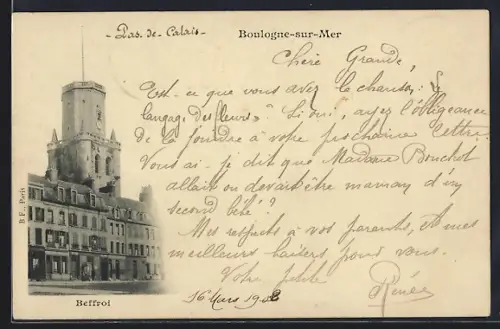 - Pas-de-Calais -
Boulogne-sur-Mer
Chère Grande,
Est-ce que vous avez la chanson : "le
langage des fleurs" ? Si oui, ayez l'obligeance
de la joindre à votre prochaine lettre.
Vous ai-je dit que Madame Bouchot
allait ou devait être maman d'un
second bébé ?
Mes respects à vos parents, et mes
meilleurs baisers pour vous.
Votre petite
Renée
16 Mars 1903
B F., Paris
Beffroi